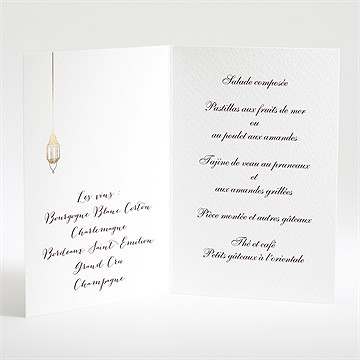 Les vins :
Bourgogne Blanc Corton
Charlemagne
Bordeaux Saint-Emilion
Grand Cru
Champagne
Salade composée
Pastillas aux fruits de mer
ou
au poulet aux amandes
Tajine de veau au pruneaux
et
aux amandes grillées
Pièce montée et autres gâteaux
Thé et café
Petits gâteaux à l'orientale